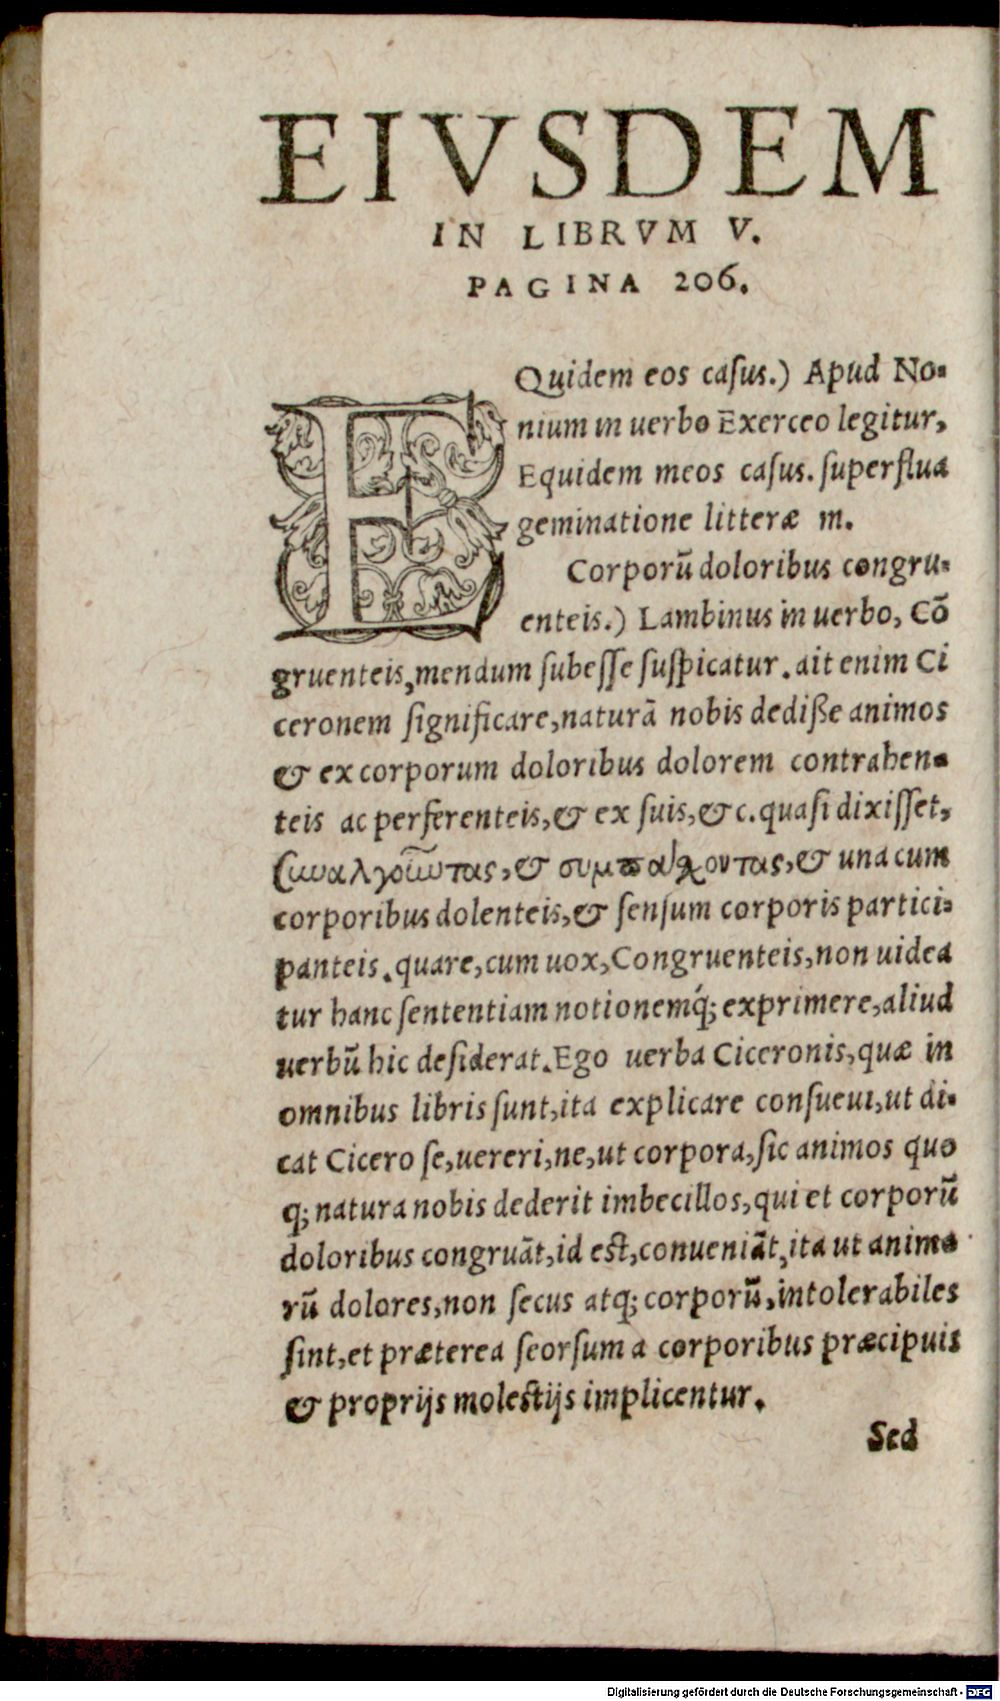 EIVSDEM
IN LIBRVM V.
PAGINA 206.
EQuidem eos casus.) Apud No-
nium in uerbo Exerceo legitur,
Equidem meos casus. superflua
geminatione litteræ m.
Corporū doloribus congru-
enteis.) Lambinus in uerbo, Cō
gruenteis, mendum subesse suspicatur. ait enim Ci
ceronem significare, naturā nobis dediße animos
& ex corporum doloribus dolorem contrahen-
teis ac perferenteis, & ex suis, &c. quasi dixisset,
συναλγοῦντας, & συμπάχοντας, & una cum
corporibus dolenteis, & sensum corporis partici-
panteis. quare, cum uox, Congruenteis, non uidea
tur hanc sententiam notionemq́; exprimere, aliud
uerbū hic desiderat. Ego uerba Ciceronis, quæ in
omnibus libris sunt, ita explicare consueui, ut di-
cat Cicero se, uereri, ne, ut corpora, sic animos quo
q; natura nobis dederit imbecillos, qui et corporū
doloribus congruāt, id est, conueniāt, ita ut animo
rū dolores, non secus atq; corporū, intolerabiles
sint, et præterea seorsum a corporibus præcipuis
& proprijs molestijs implicentur.
Sed
Digitalisierung gefördert durch die Deutsche Forschungsgemeinschaft - DFG